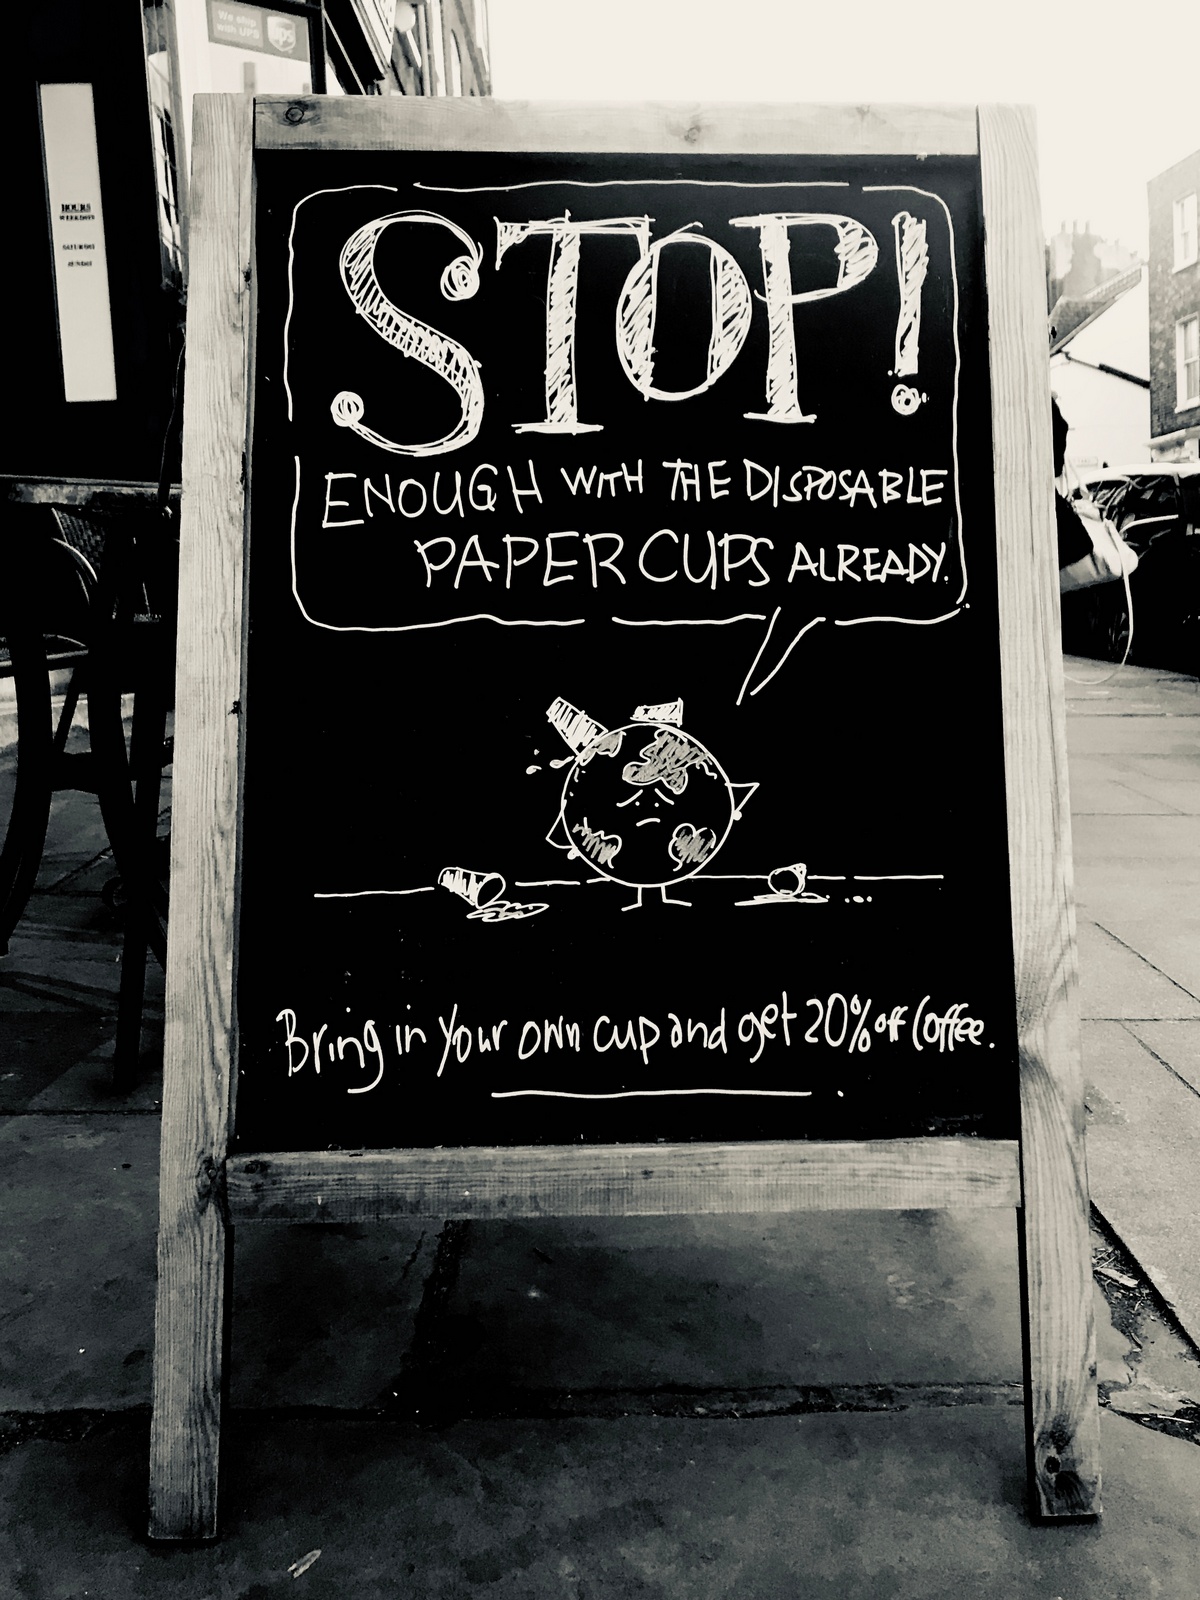 We ship
with UPS
ups
HOURS
STOP!
ENOUGH WITH THE DISPOSABLE
PAPER CUPS ALREADY.
Bring in your own cup and get 20% off Coffee.